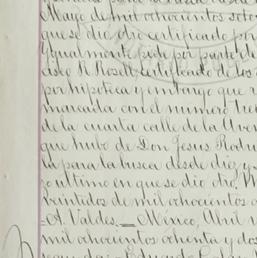 Mayo de mil ochocientos seten
que se dio dio certificado por
Igualmente pide por parte de
cisco R. Rosell, certificado de los
por hipoteca y embargo que
marcada con el numero trec
de la cuarta calle de la Aven
que hubo de Don Jesus Rodri
para la busca desde diez y
ultimo en que se dio dio.
veintidos de mil ochocientos
A. Valdes. — Mexico, Abril
mil ochocientos ochenta y dos